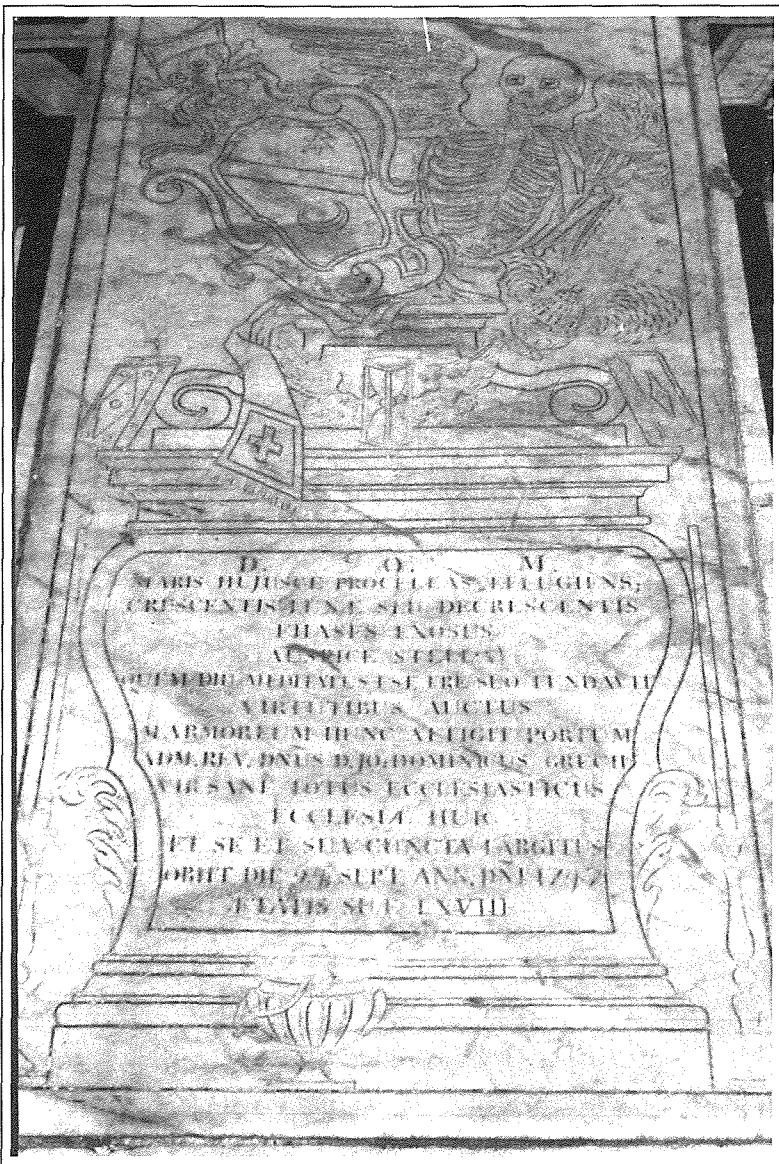 D. O. M.
MARIS HUJUSCE PROCELLAS EFFUGIENS;
CRESCENTIS LUNÆ SEU DECRESCENTIS
PHASES EXOSUS
AUSPICE STELLA
QUEM DIU MEDITATUS EST ERE SUO FUNDAVIT
VIRTUTIBUS AUCTUS
MARMOREUM HUNC ATTIGIT PORTUM
ADM. REV. DNUS D. JO: DOMINICUS GRECH
VIR SANE TOTUS ECCLESIASTICUS
ECCLESIÆ HUIC
ET SE ET SUA CUNCTA LARGITUS
OBIIT DIE SEPT. ANN. DNI
ÆTATIS SUÆ LXVIII